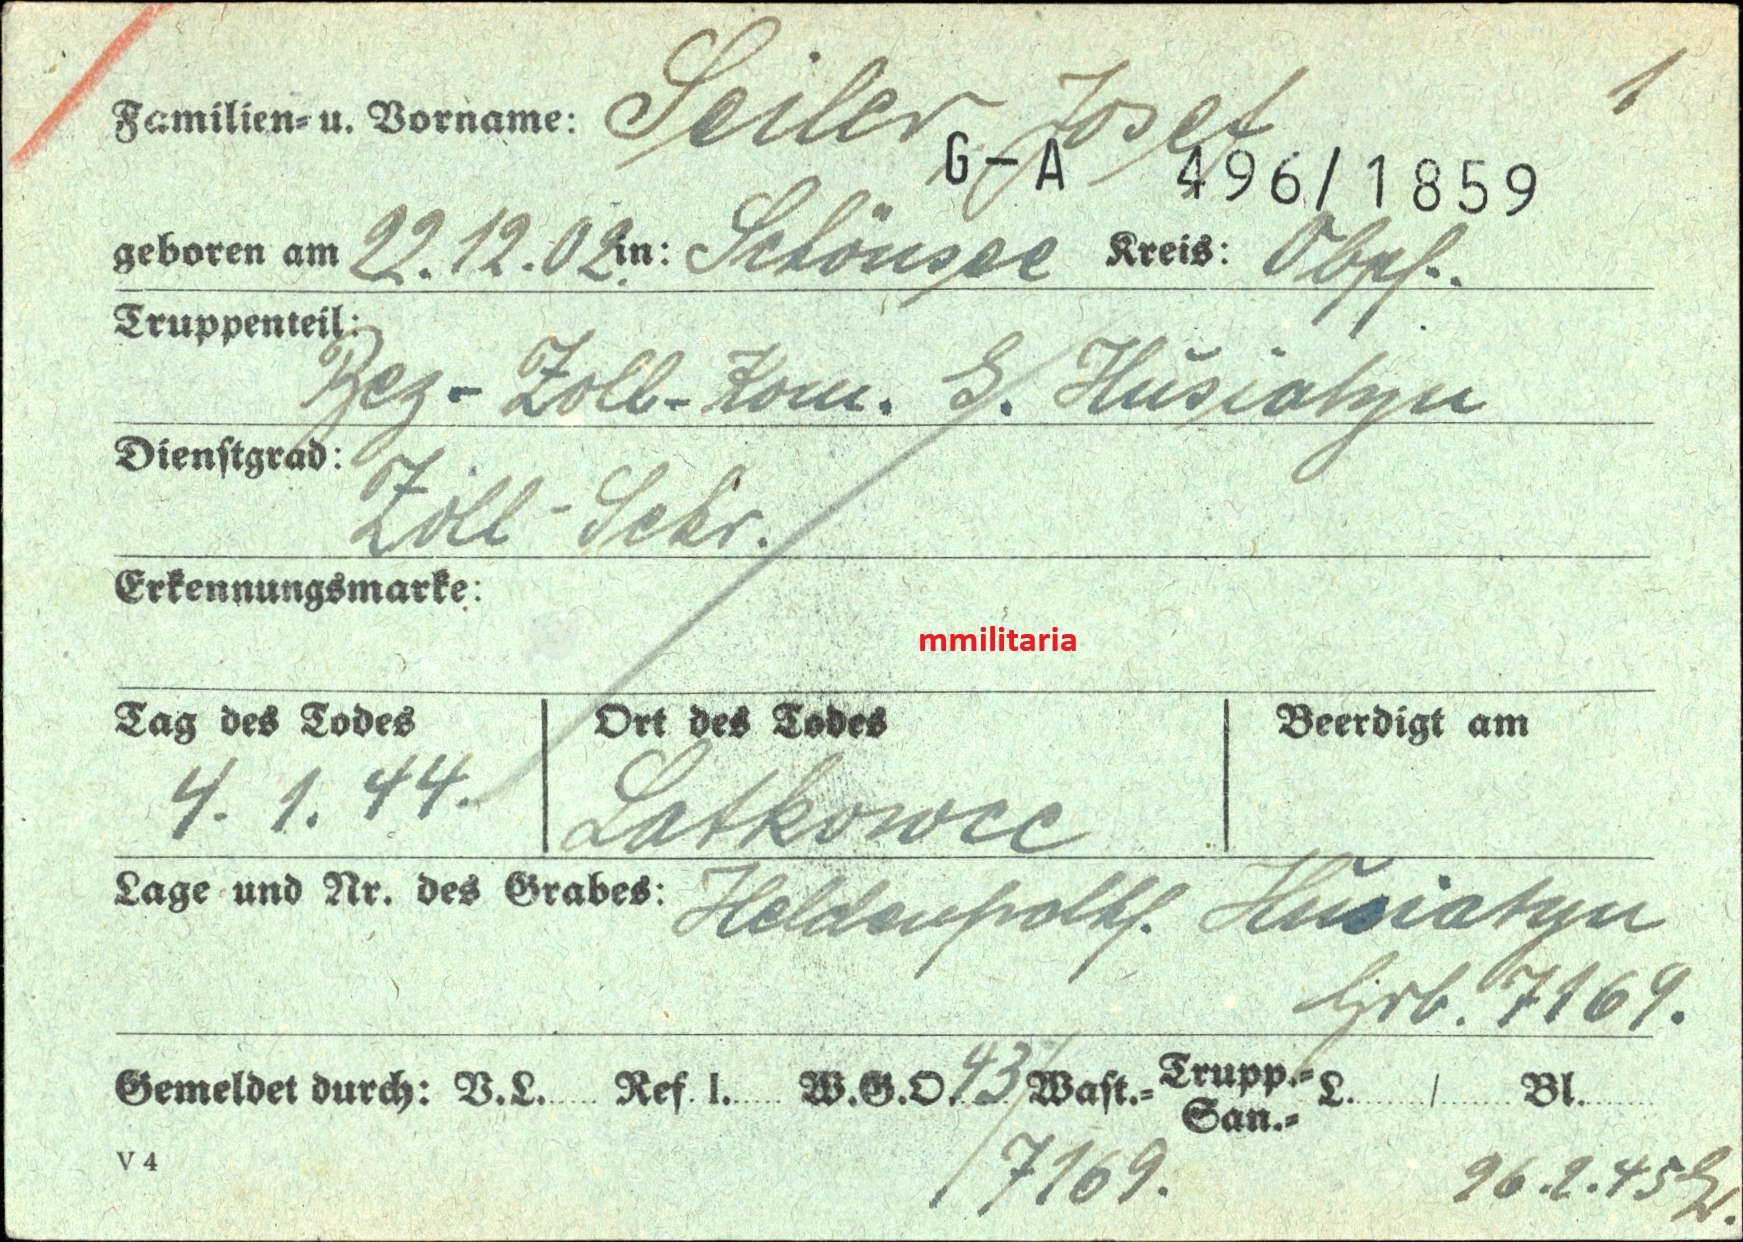 Familien- u. Vorname: Seiler Josef 1
G-A 496/1859
geboren am 22.12.02 in: Schönsee Kreis: Obpf.
Truppenteil:
Bez-Zoll-Kom. G. Husiatyn
Dienstgrad:
Zoll-Sekr.
Erkennungsmarke:
mmilitaria
Tag des Todes Ort des Todes Beerdigt am
4. 1. 44. Latkowce
Lage und Nr. des Grabes: Heldenfrdhf. Husiatyn
Grb. 7169.
Gemeldet durch: V.L. Ref. I. W.G.O. 43/ Wast.- Trupp.- San.- L. / Bl.
/7169.
V 4
26.2.45